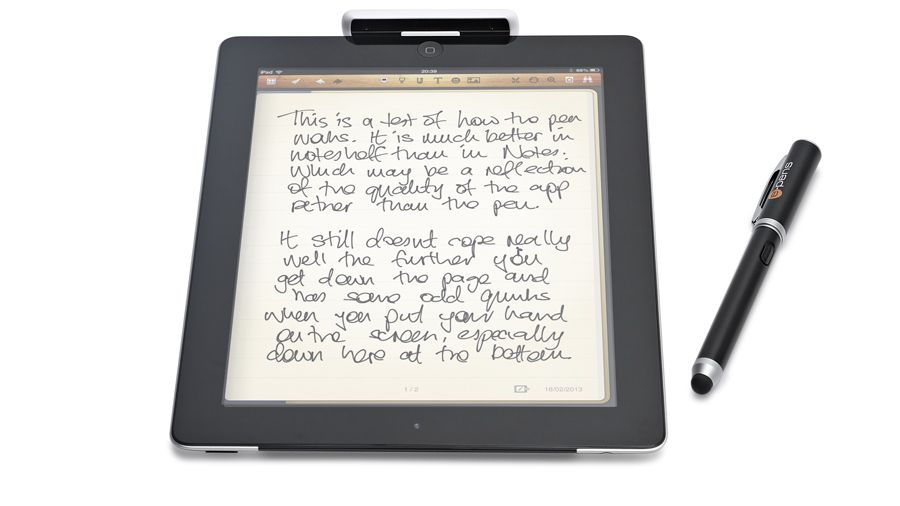 iPad 20:39 68%
This is a test of how the pen
works. It is much better in
noteshelf than in Notes.
Which may be a reflection
of the quality of the app
rather than the pen.
It still doesnt cope really
well the further you
get down the page and
has some odd quirks
when you put your hand
on the screen, especially
down here at the bottom
1 / 2 18/02/2013